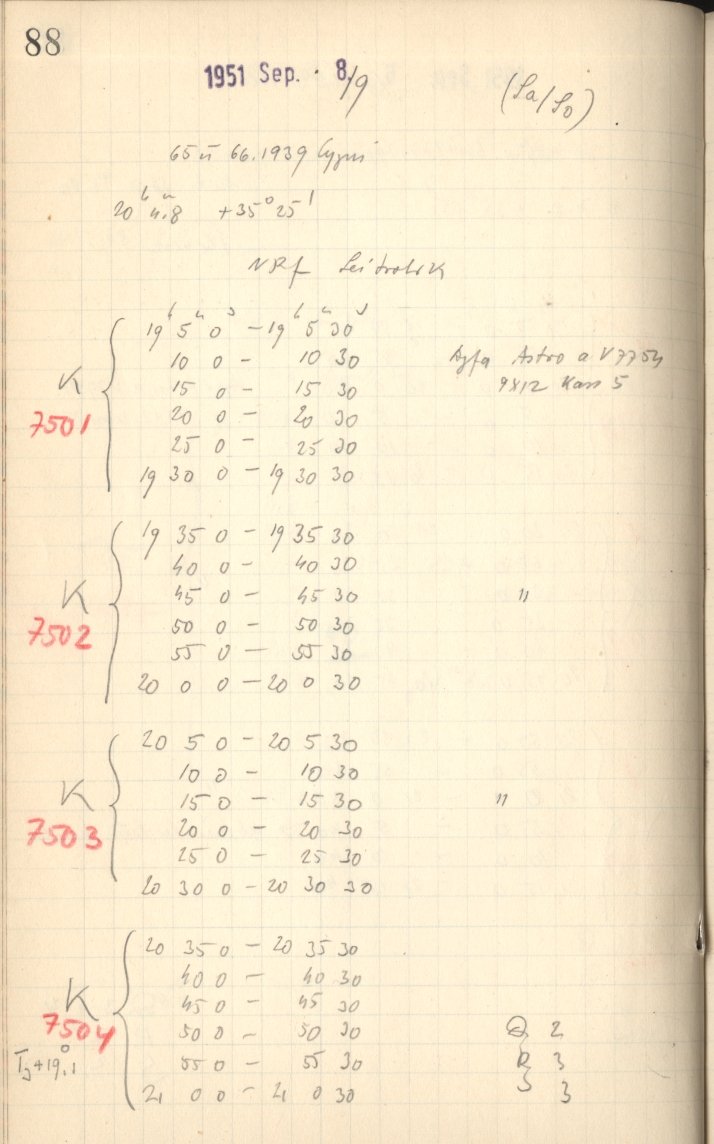 88
1951 Sep. 8/9 (Sa/So)
65 u 66.1939 Cygni
20 h 4 m.8 +35° 25'
19 h 5 m 0 s – 19 h 5 m 30 s
10 0 – 10 30
Agfa Astro
15 0 – 15 30
9x12 Kass 5
K
20 0 – 20 30
7501
25 0 – 25 30
19 30 0 – 19 30 30
19 35 0 – 19 35 30
40 0 – 40 30
K
45 0 – 45 30 "
7502
50 0 – 50 30
55 0 – 55 30
20 0 0 – 20 0 30
20 5 0 – 20 5 30
10 0 – 10 30
K
15 0 – 15 30 "
7503
20 0 – 20 30
25 0 – 25 30
20 30 0 – 20 30 30
20 35 0 – 20 35 30
40 0 – 40 30
K
45 0 – 45 30
7504
50 0 – 50 30 Q 2
+19°.1
55 0 – 55 30 R 3
21 0 0 – 21 0 30 S 3